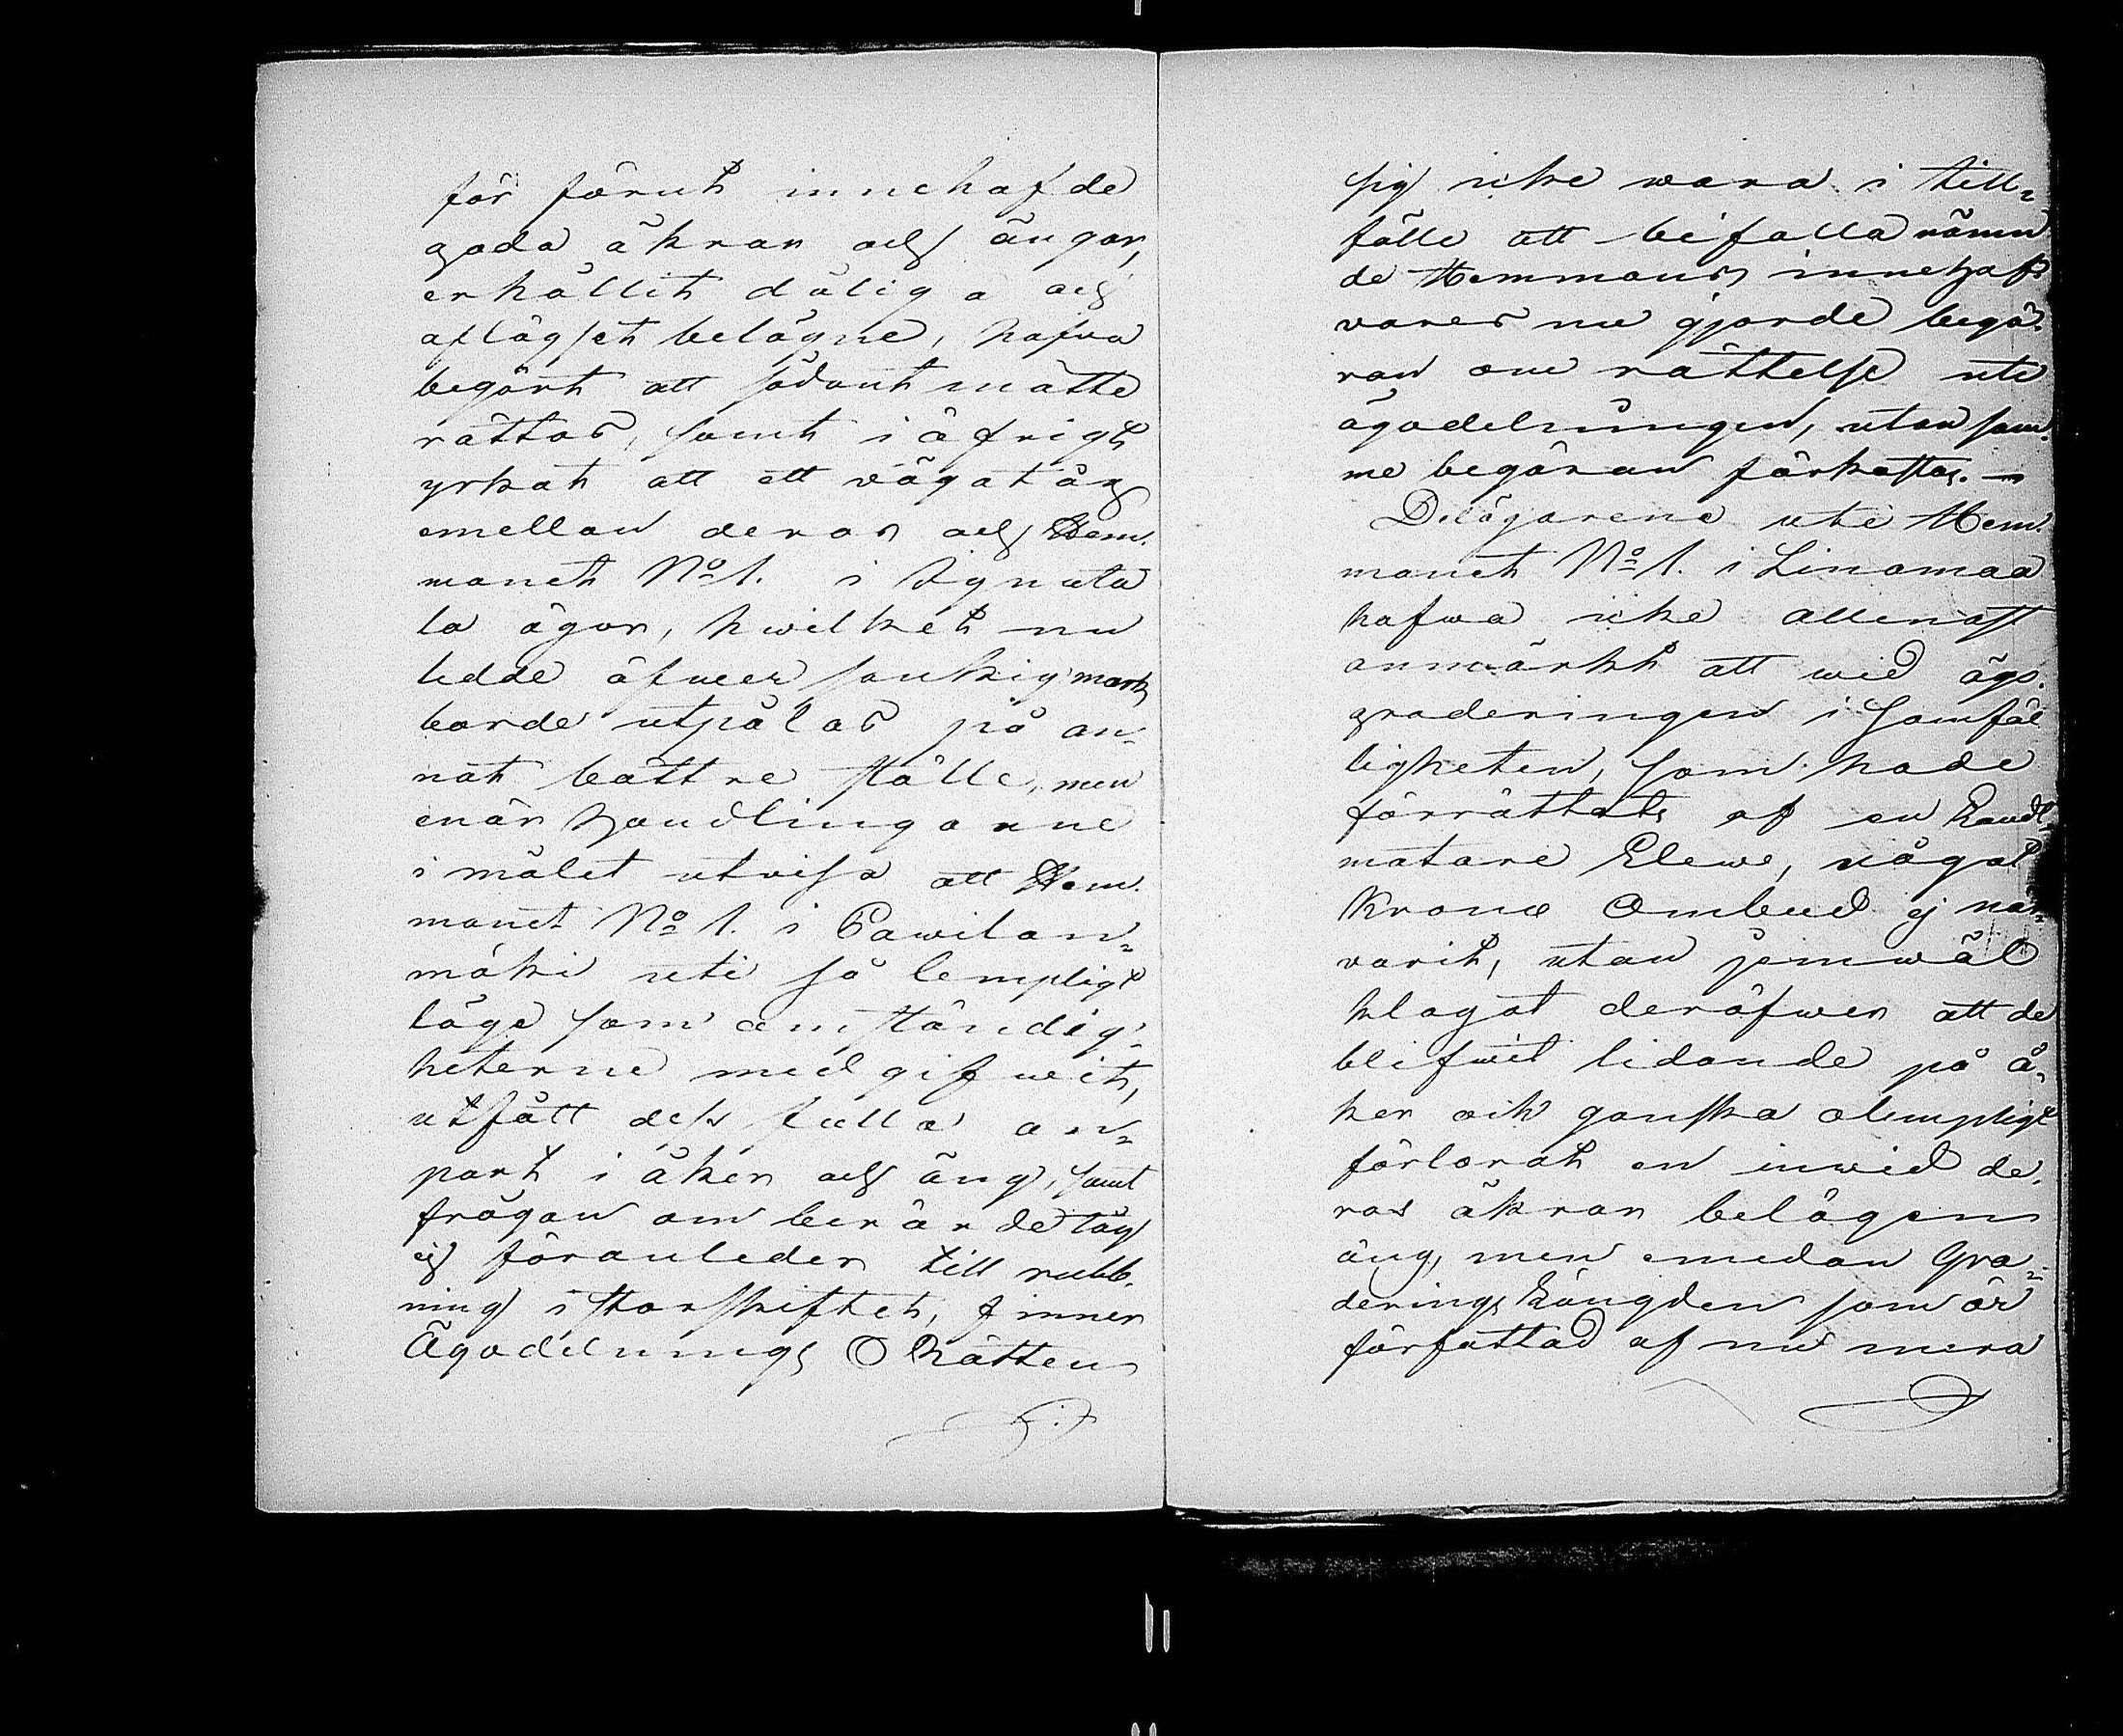 för förut innehafde
goda åkrar och ängar,
erhållit dåliga och
aflägset belägne, hafva
begärt att sådant måtte
rättas, samt i öfrigt
yrkat att ett vägatåg
emellan deras och Hem-
manet No 1. i Ignata
la ägor, hwilket nu
ledde öfwer sankig mark
borde utpålas på an-
nat bättre ställe, men
enär Handlingarne
i målet utvisa att Hem-
manet No 1. i Pawilan-
mäki uti så lempligt
läge som omständig-
heterne medgifweit,
utfått dess fulla an-
part i åker och äng, samt
frågan om berörde tåg
ej föranleder till rubb-
ning i storskiftet, finner
Ägodelnings Rätten
sig icke wara i till-
fälle att bifalla nämn
de Hemmans innehaf-
vares nu gjorde begä-
ran om rättelse uti
ägodelningen, utan sam-
me begäran förkastas. —
Delägarene uti Hem-
manet No 1. i Linamaa
hafwa icke allenast
anmärkt att wid ägo-
graderingen i Samfäl
ligheten, som hade
förrättats af en Landt-
mätare Elewe, något
Krono Ombud ej när-
varit, utan jemwäl
klagat deröfwer att de
blifwit lidande på å-
ker och ganska olempligt
förlorat en inwid de-
ras åkrar belägen
äng, men emedan Gra-
derings Längden som är
författad af nu mera